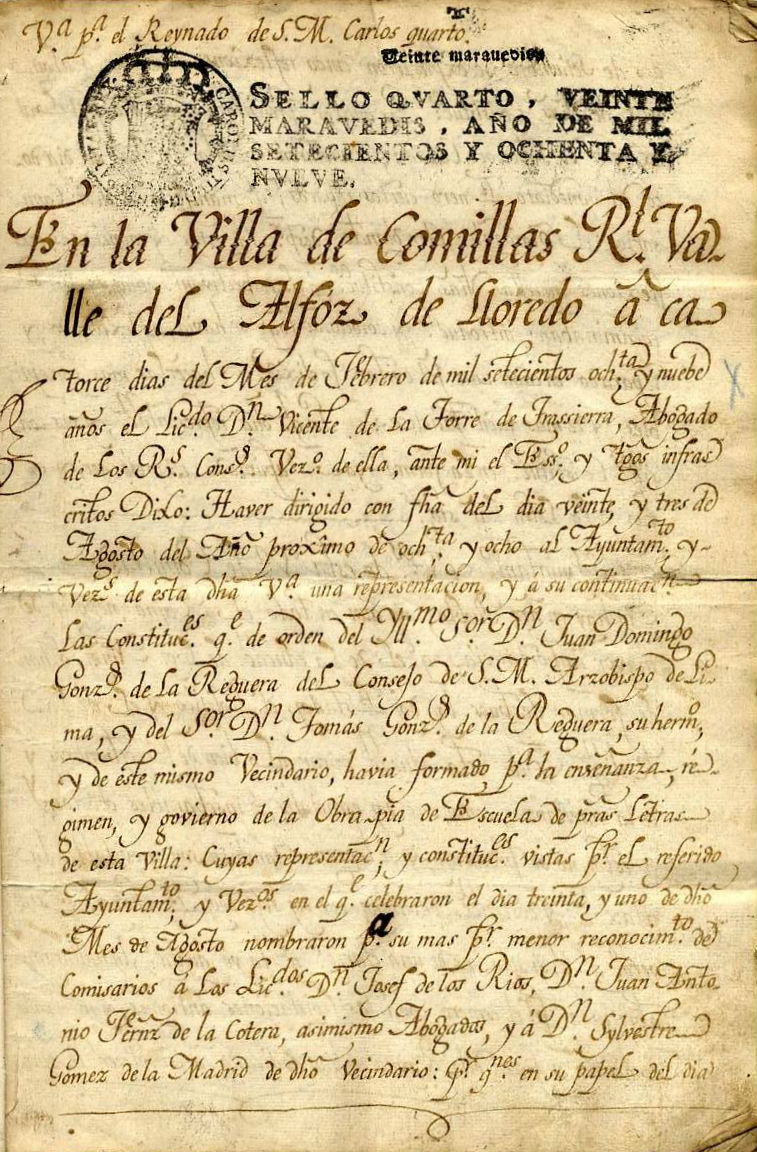 V.ª p.ª el Reynado de S. M. Carlos quarto.
Veinte maravedis
SELLO QVARTO, VEINTE
MARAVEDIS, AÑO DE MIL
SETECIENTOS Y OCHENTA Y
NVEVE.
En la Villa de Comillas R.l Va-
lle del Alfóz de Lloredo â ca
torce dias del Mes de Febrero de mil setecientos och.ta y nuebe
años el Lic.do D.n Vicente de La Torre de Trassierra, Abogado
de Los R.s Cons.s Vez.o de ella, ante mi el Ess.o, y tgos infras
critos Dixo: Haver dirigido con fhã del dia veinte, y tres de
Agosto del Año proximo de och.ta y ocho al Ayuntam.to y-
Vez.s de esta dhã V.ª una representacion, y á su continuac.n
Las Constituc.es q.e de orden del Yll.mo S.or D.n Juan Domingo
Gonz.z de La Reguera del Consejo de S. M. Arzobispo de Li-
ma, y del S.or D.n Tomás Gonz.z de la Reguera, su herm.o,
y de este mismo Vecindario, havia formado p.ª la enseñanza, ré-
gimen, y govierno de la Obra pia de Escuela de prãs Letras
de esta Villa: Cuyas representac.n, y constituc.es vistas p.r el referido
Ayuntam.to, y Vez.os en el q.e celebraron el dia treinta, y uno de dhõ
Mes de Agosto nombraron p.a su mas p.r menor reconocim.to de
Comisarios á Los Lic.dos D.n Josef de los Rios, D.n Juan Anto
nio Fernz de la Cotera, asimismo Abogados, y á D.n Sylvestre
Gomez de la Madrid de dhõ Vecindario: P.r q.nes en su papel del dia